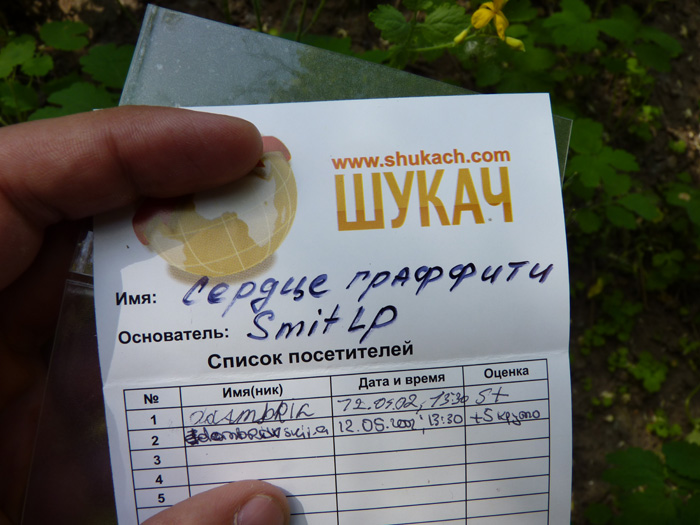 www.shukach.com
ШУКАЧ
Имя: Сердце граффити
Основатель: Smit LP
Список посетителей
№ Имя(ник) Дата и время Оценка
1 13:30 5+
2 13:30 +5 круто
3
4
5